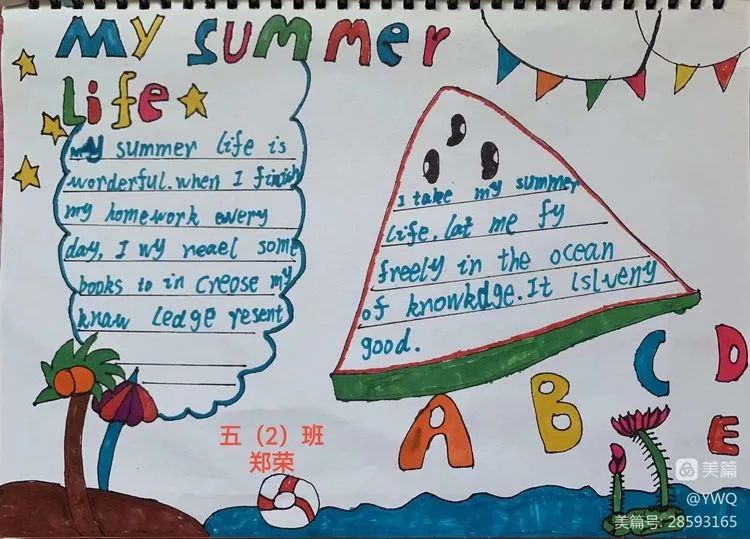 My summer
Life
My summer life is
worderful. when I finish
my homework every
day, I wy neael some
books to in creose my
knaw ledge resent
I take my summer
life, lat me fy
freely in the ocean
of knowkdge. It isl veny
good.
A B C D
E
五（2）班
郑荣
美篇
@YWQ
美篇号: 28593165